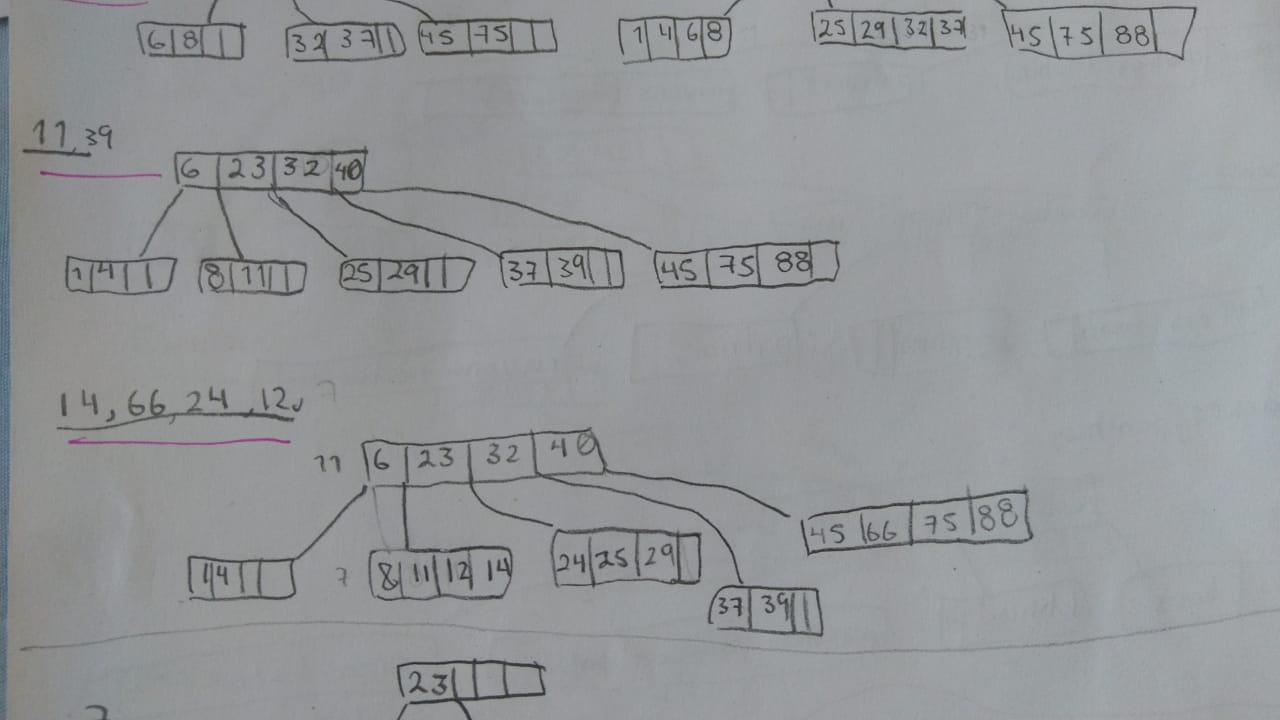 6 8 32 37 45 75 1 4 6 8 25 29 32 37 45 75 88
11, 39
6 23 32 40
1 4 8 11 25 29 37 39 45 75 88
14, 66, 24, 12, 7
11 6 23 32 40
45 66 75 88
1 4 7 8 11 12 14 24 25 29
37 39
23
7